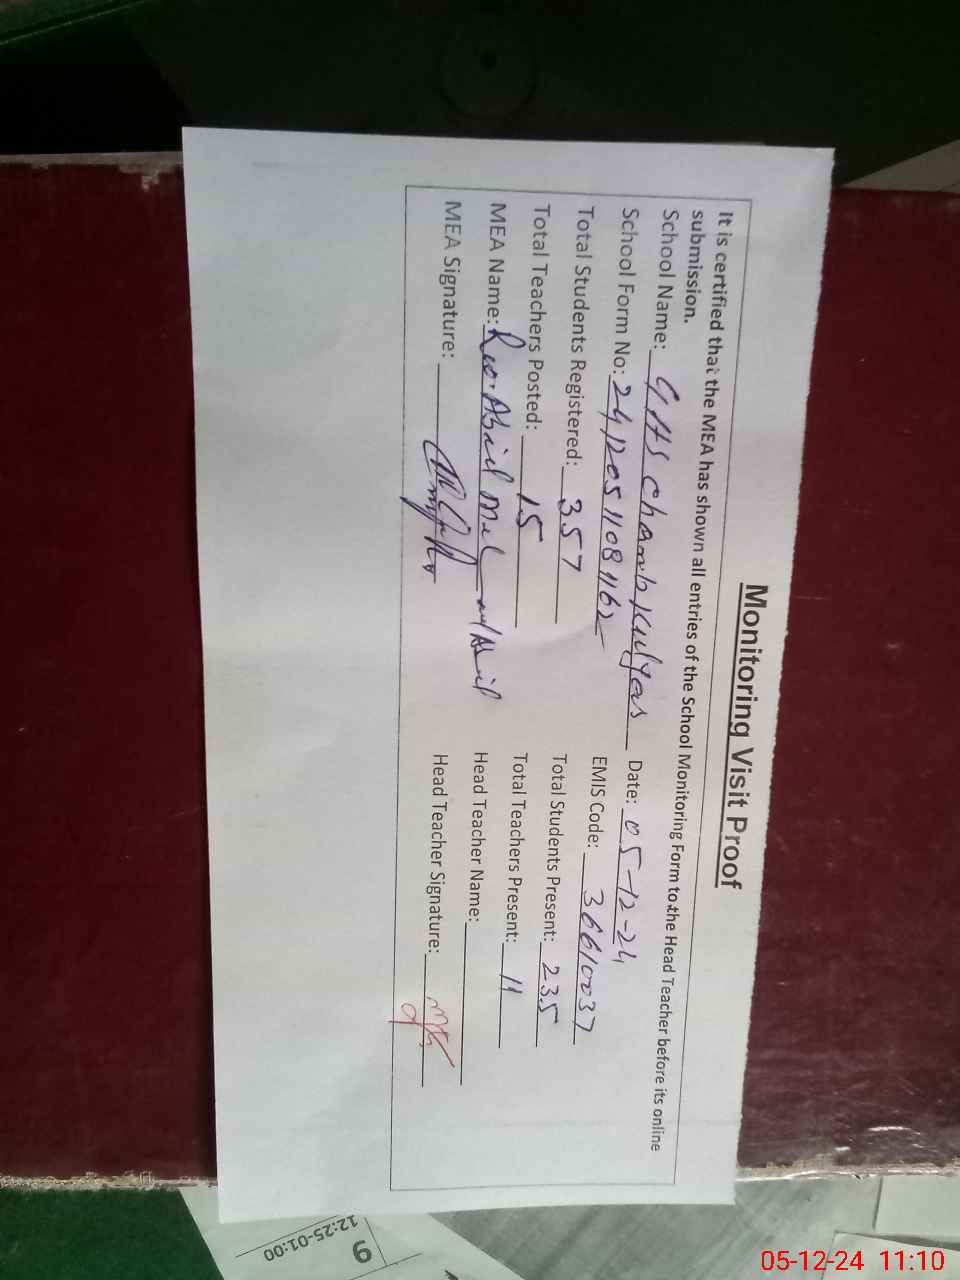 Monitoring Visit Proof
It is certified that the MEA has shown all entries of the School Monitoring Form to the Head Teacher before its online
submission.
School Name: GHS Chamb Kulyar Date: 05-12-24
School Form No: 24120511081162 EMIS Code: 36610037
Total Students Registered: 357 Total Students Present: 235
Total Teachers Posted: 15 Total Teachers Present: 11
MEA Name: Rao Head Teacher Name:
MEA Signature: Head Teacher Signature:
12:25-01:00
9
05-12-24 11:10